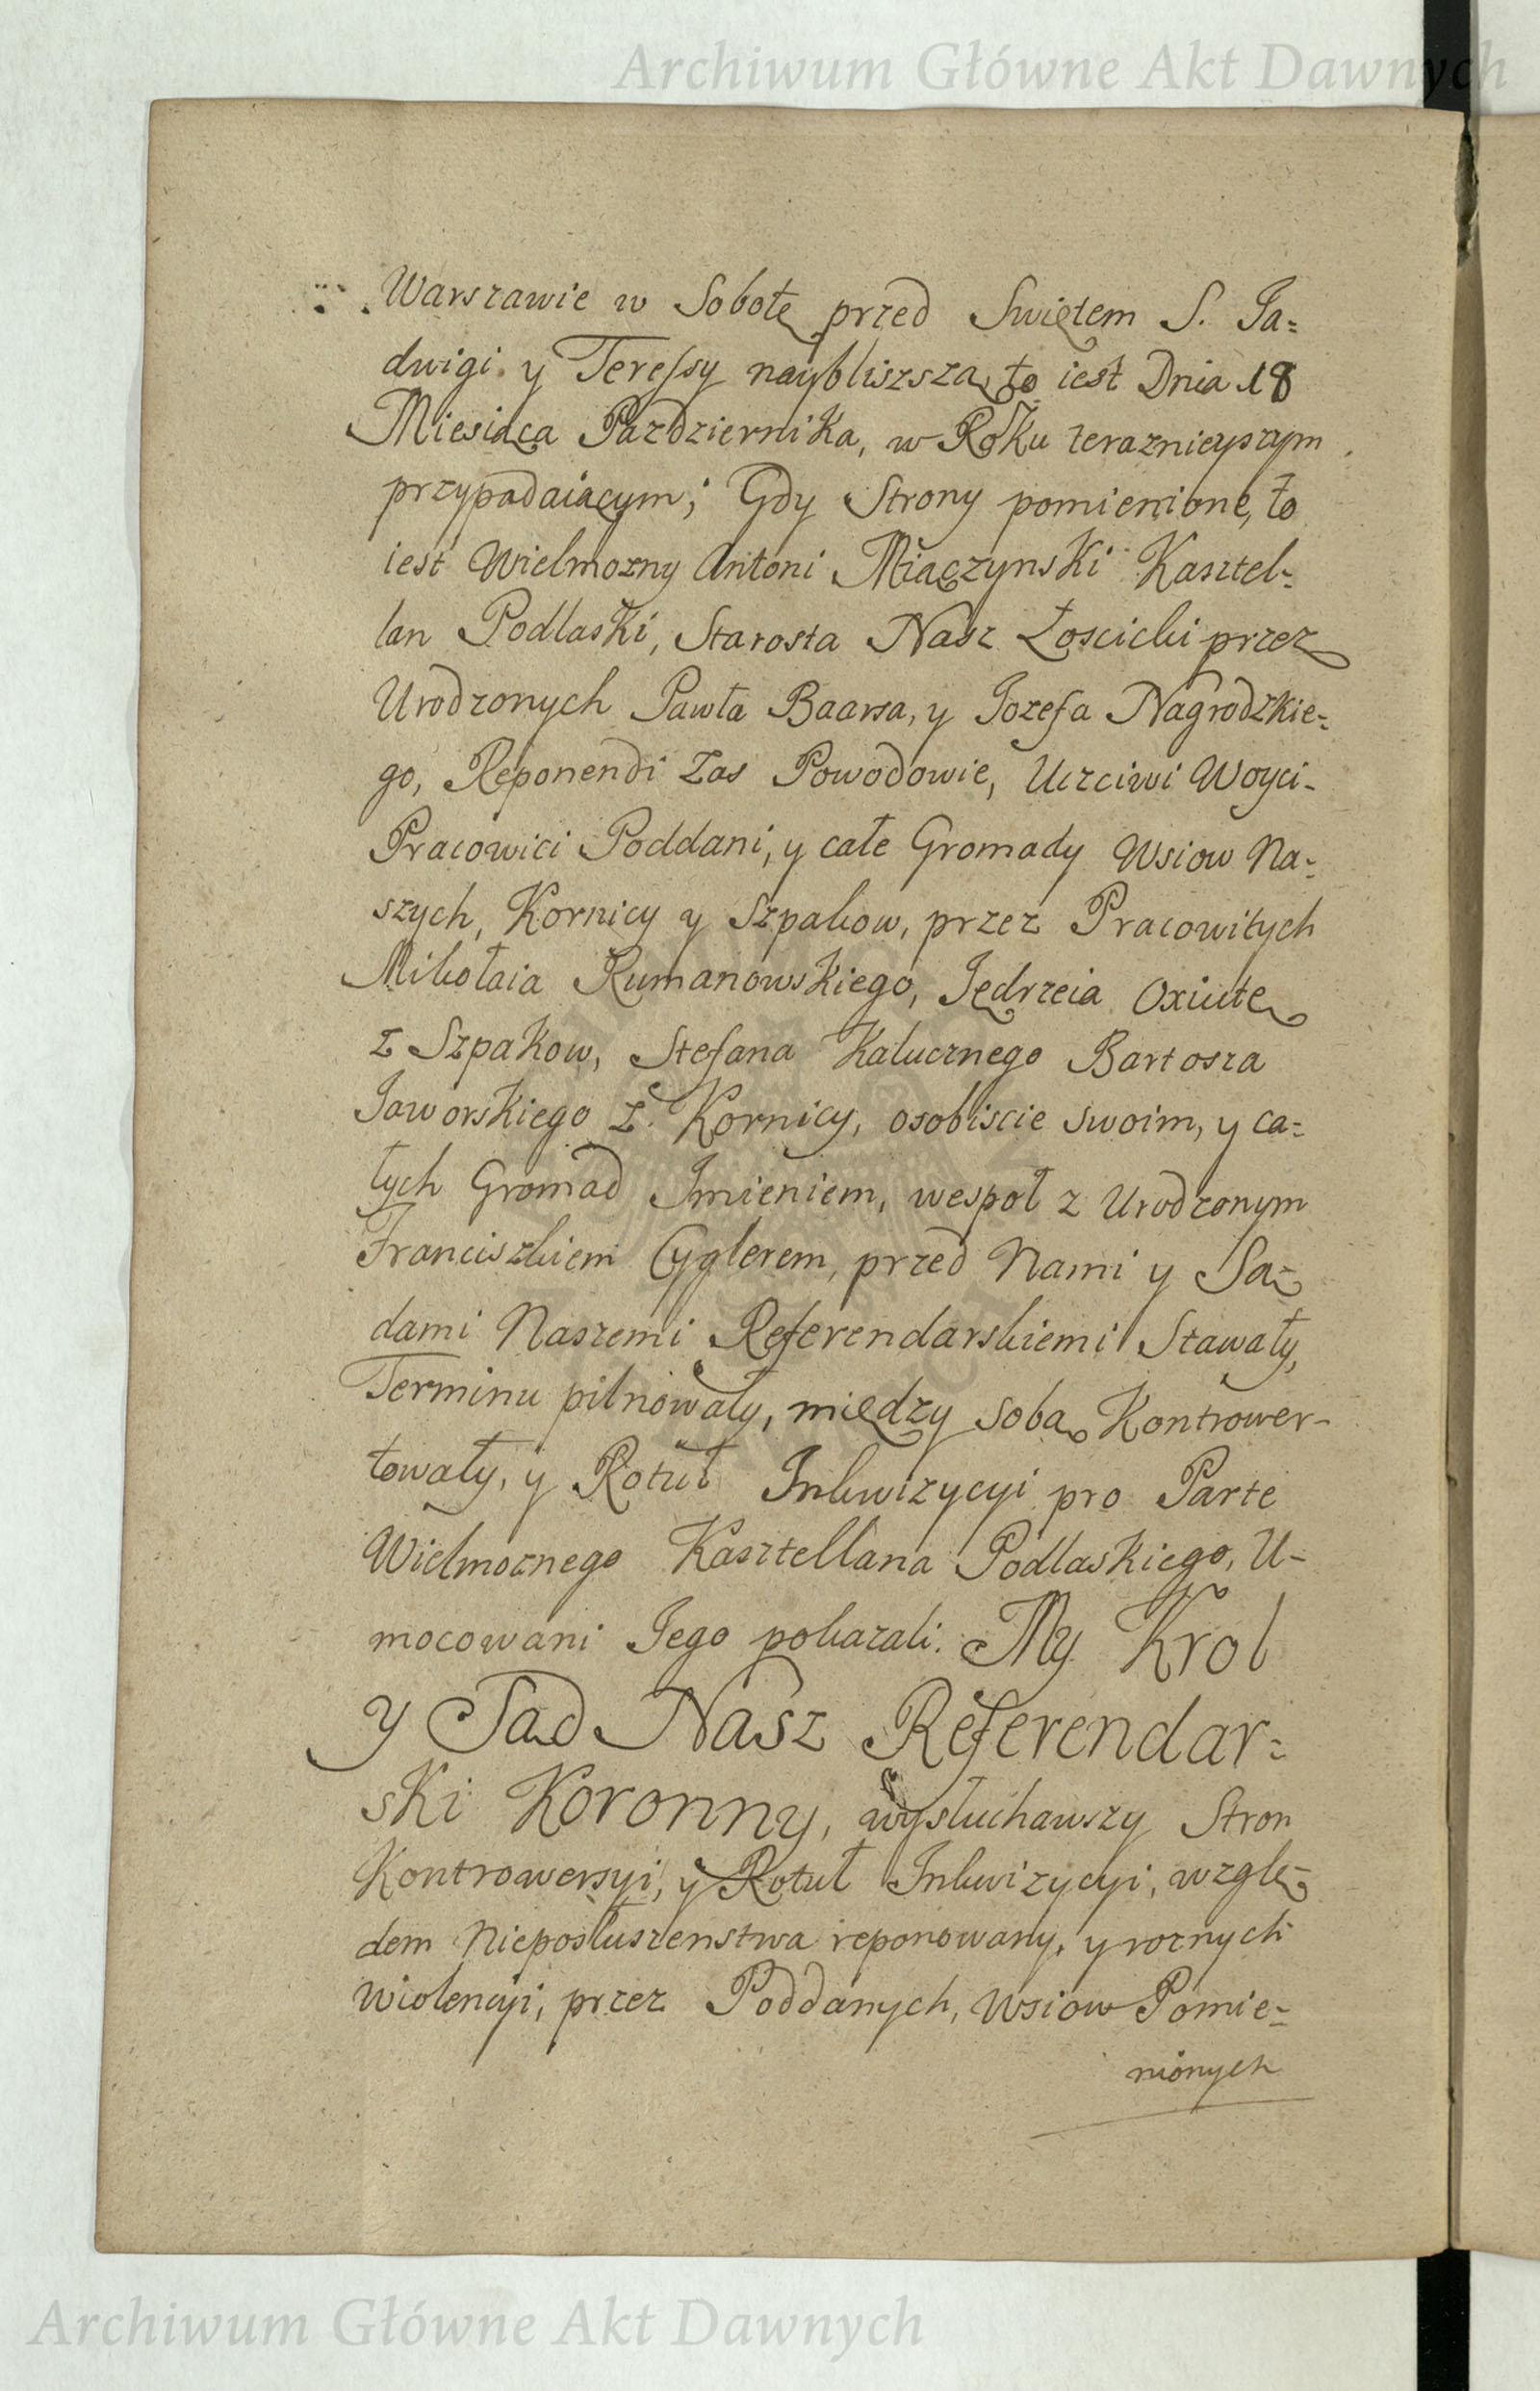 Archiwum Główne Akt Dawnych
Warszawie w Sobotę przed Swiętem S. Ja=
dwigi y Teressy naybliszszą to iest Dnia 18
Miesiąca Pazdziernika, w Roku teraznieyszym
przypadaiącym; Gdy Strony pomienione, to
iest Wielmozny Antoni Miączynski Kasztel=
lan Podlaski, Starosta Nasz Łoscicki przez
Urodzonych Pawła Baarsa, y Jozefa Nagrodzkie=
go, Reponendi Zas Powodowie, Uczciwi Woyci-
Pracowici Poddani, y całe Gromady Wsiow Na=
szych, Kornicy y Szpakow, przez Pracowitych
Mikołaia Rumanowskiego, Jędrzeia Oxiutę
z Szpakow, Stefana Kalucznego Bartosza
Jaworskiego z Kornicy, osobiscie swoim, y ca=
łych Gromad Imieniem, wespoł z Urodzonym
Franciszkiem Cyglerem, przed Nami y Są=
dami Naszemi Referendarskiemi Stawały,
Terminu pilnowały, między sobą Kontrower-
towały, y Rotuł Inkwizycyi pro Parte
Wielmoznego Kasztellana Podlaskiego, U-
mocowani Jego pokazali. My Krol
y Sąd Nasz Referendar=
ski Koronny, wysłuchawszy Stron
Kontrowersyi, y Rotuł Inkwizycyi, wzglę=
dem Nieposłuszenstwa reponowany, y roznych
Wiolencyi, przez Poddanych, Wsiow Pomie=
nionych
Archiwum Główne Akt Dawnych